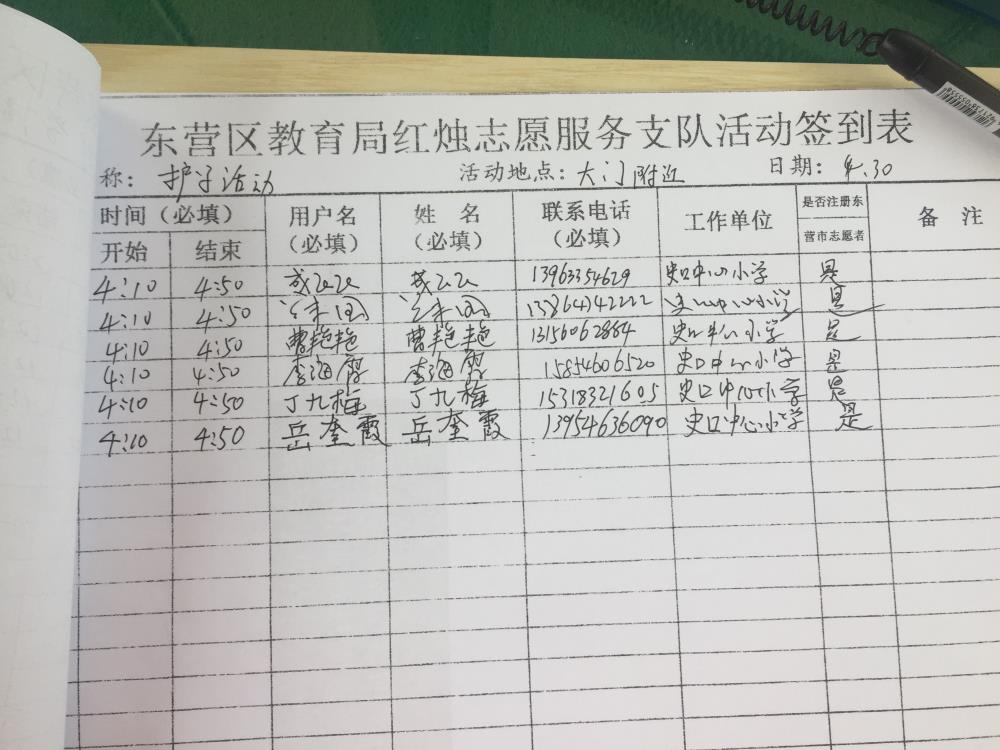 东营区教育局红烛志愿服务支队活动签到表
称： 护学活动 活动地点：大门附近 日期：4.30
时间（必填） 用户名（必填） 姓 名（必填） 联系电话（必填） 工作单位 是否注册东营市志愿者 备 注
开始 结束
4:10 4:50 13963354629 史口中心小学 是
4:10 4:50 13864342222 史口中心小学 是
4:10 4:50 曹艳艳 曹艳艳 13156062884 史口中心小学 是
4:10 4:50 李海霞 李海霞 15854606520 史口中心小学 是
4:10 4:50 丁九梅 丁九梅 15318321605 史口中心小学 是
4:10 4:50 岳奎霞 岳奎霞 13954636090 史口中心小学 是